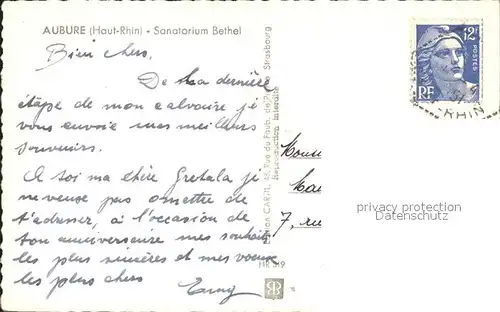 AUBURE (Haut-Rhin) - Sanatorium Bethel
Bien chers.
De ma dernière
étape de mon calvaire je
vous envoie mes meilleurs
souvenirs.
A toi ma chère Gretala je
ne veux pas omettre de
t'adresser, à l'occasion de
ton anniversaire mes souhaits
les plus sincères et mes voeux
les plus chers
Edition CARAL, Rue du Faub. de Strasbourg
Reproduction interdite
HR 319
12F
POSTES
RF
RHIN
7, ru
privacy protection
Datenschutz